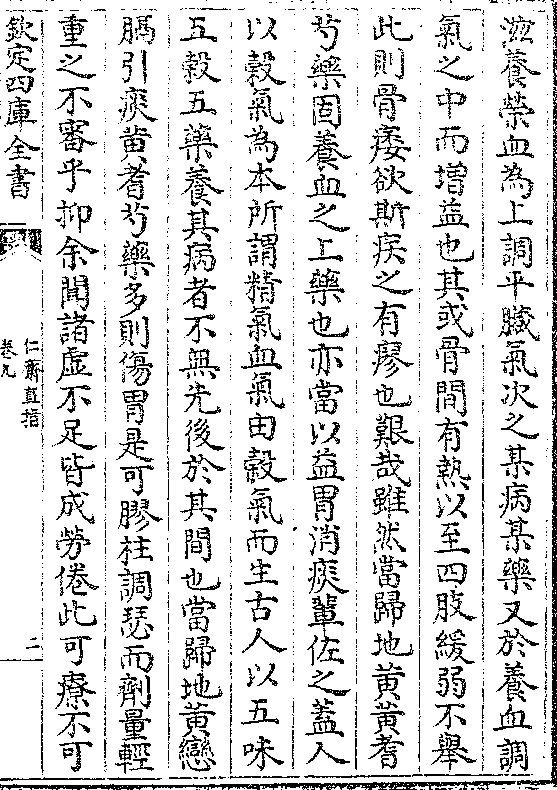 滋養榮血為上調平臟氣次之某病某藥又於養血調
氣之中而增益也其或骨間有熱以至四肢緩弱不舉
此則骨痿欲斯疾之有瘳也艱哉雖然當歸地黄黄耆
芍藥固養血之上藥也亦當以益胃消痰輩佐之蓋人
以穀氣為本所謂精氣血氣由穀氣而生古人以五味
五穀五藥養其病者不無先後於其間也當歸地黄戀
膈引痰黄耆芍藥多則傷胃是可膠柱調瑟而劑量輕
重之不審乎抑余聞諸虚不足皆成勞倦此可療不可
欽定四庫全書
仁齋直指
卷九
二